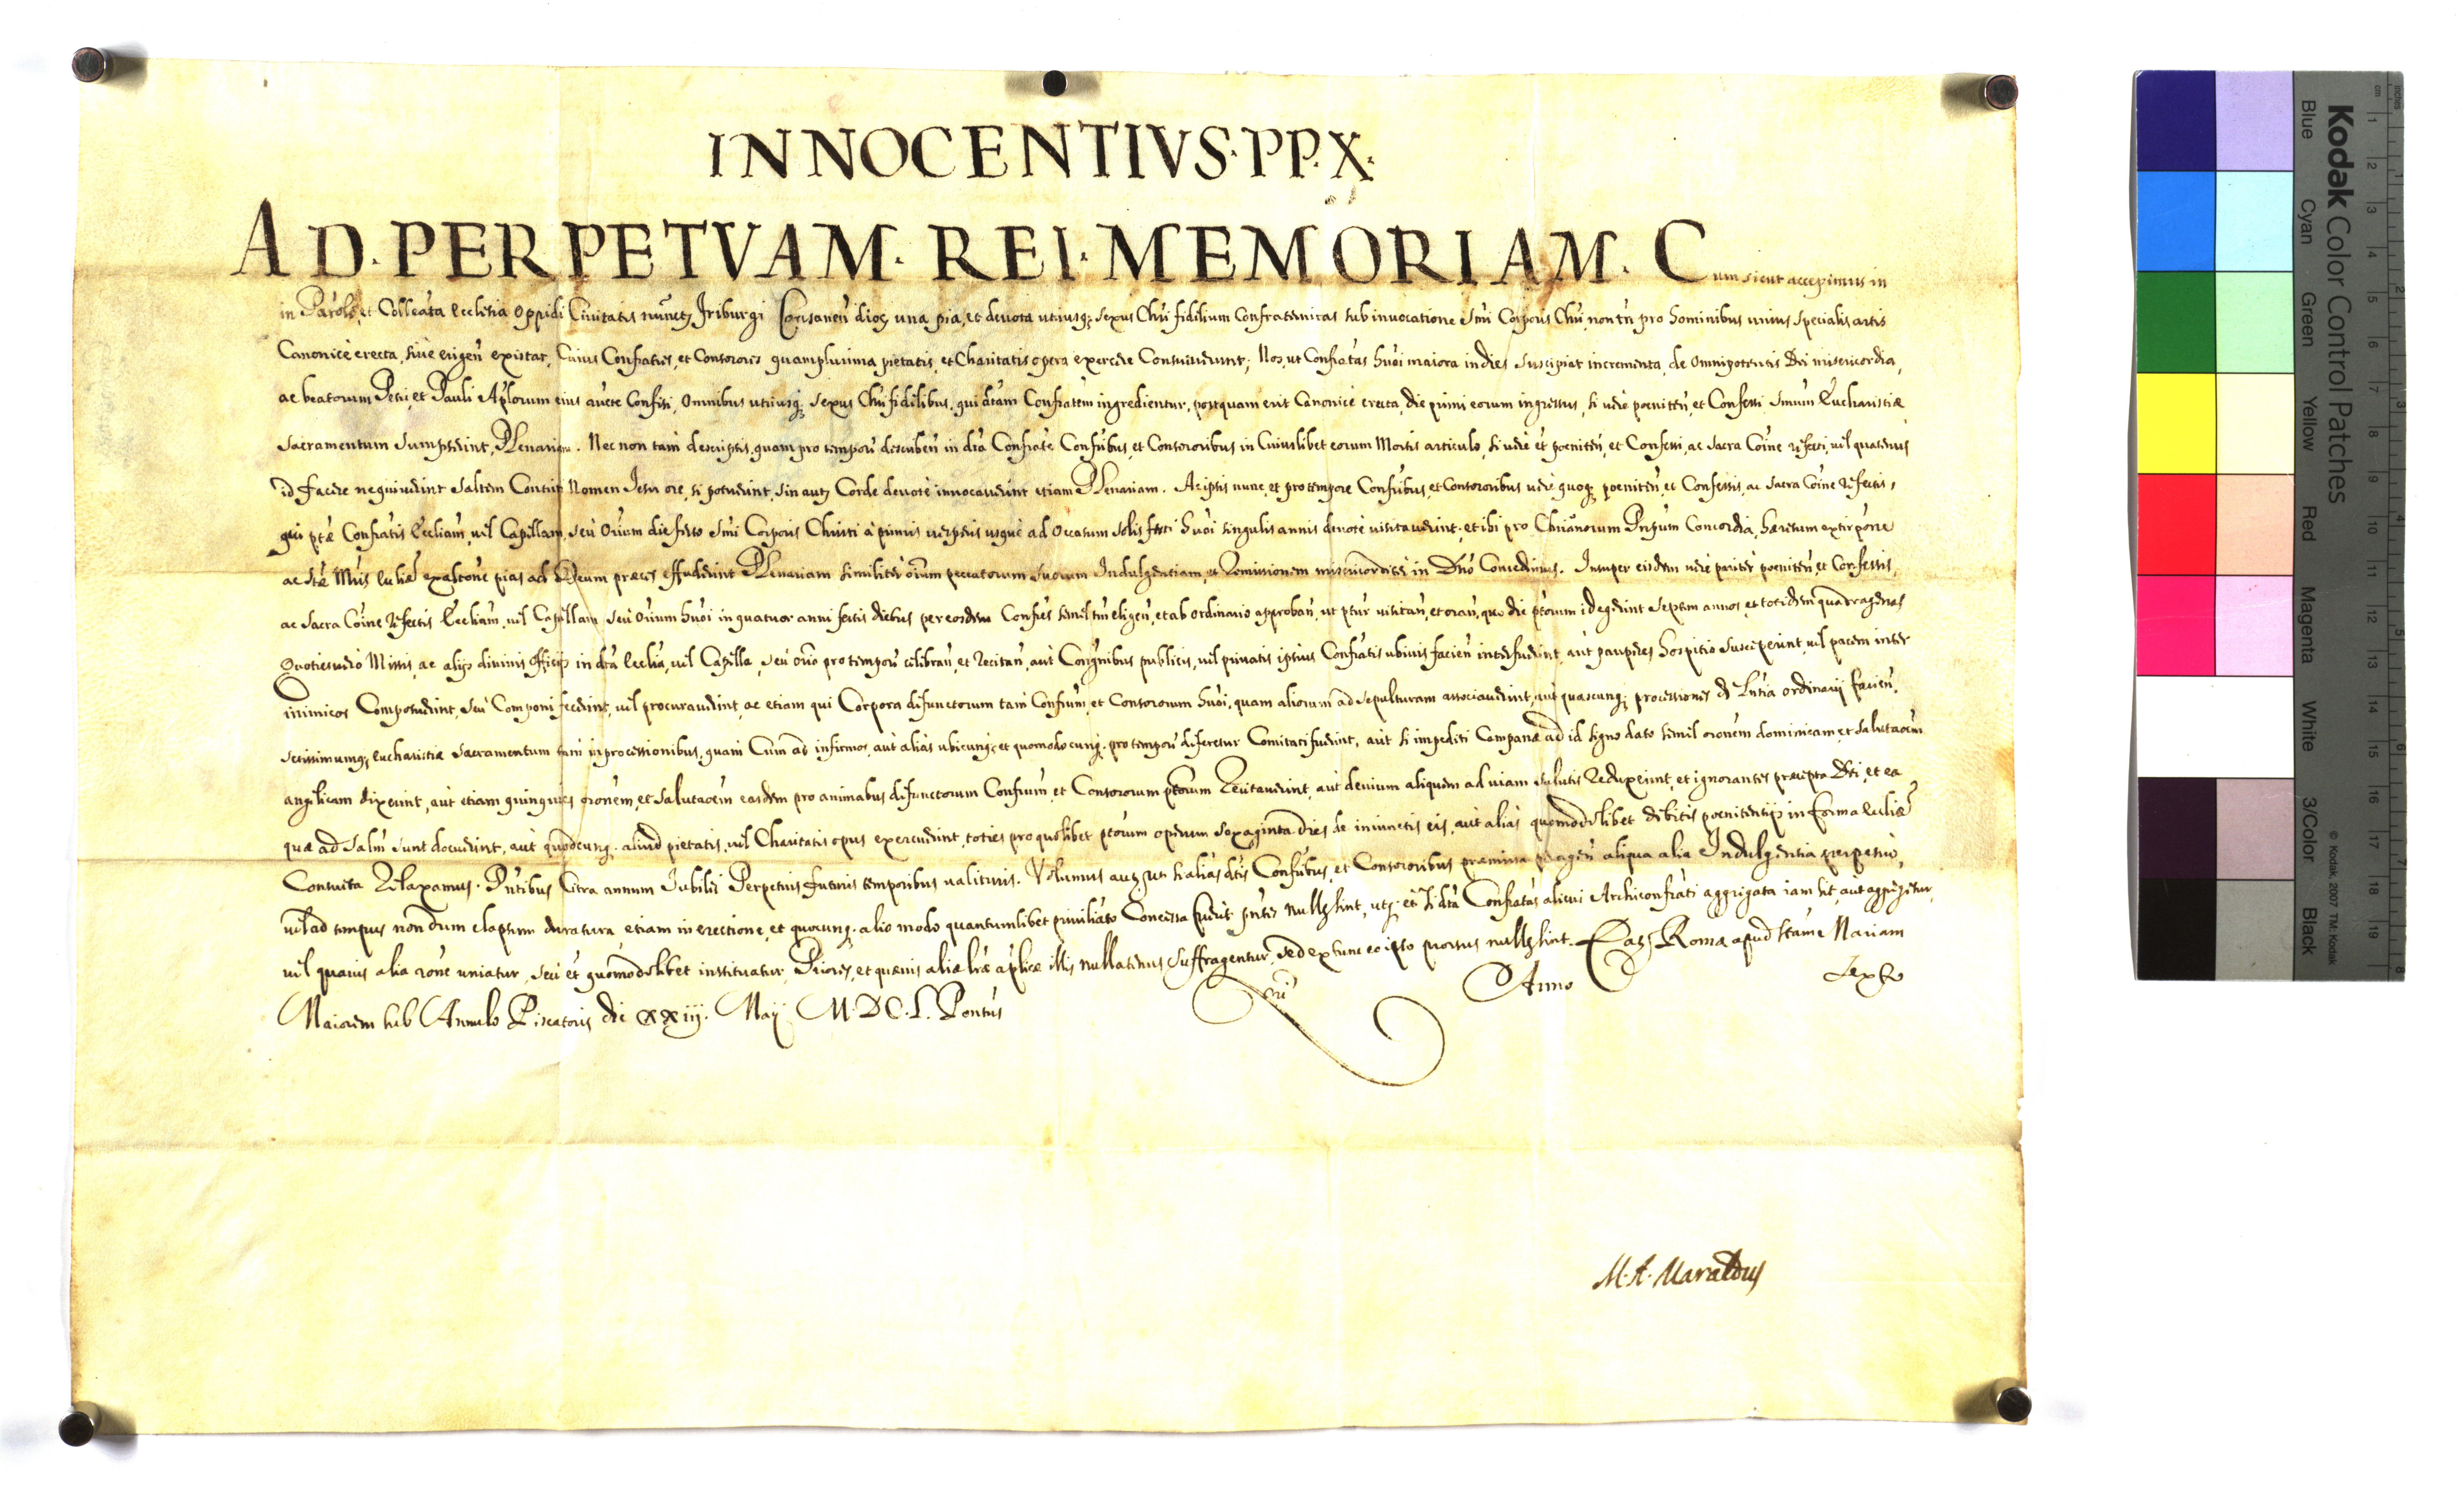 INNOCENTIVS·PP·X·
AD·PERPETVAM·REI·MEMORIAM·Cum sicut accepimus in
in Paroli, et Colleata Ecclesia Oppidi Civitatis nuncz Friburgi Lausanen dioc una pia, et devota utriusq sexus Chri fidelium Confraternitas sub invocatione Smi Corporis Chri, non tn pro hominibus unius specialis artis
Canonicè erecta, sivè erigen existat, cuius Confratres, et Consorores quamplurima pietatis, et Charitatis opera exercere Consueverunt; Nos, ut Confratas huoi maiora in dies suscipiat incrementa, de Omnipotentis Dei misericordia,
ac beatorum Petri, et Pauli Aplorum eius aucte Confisi, Omnibus utriusq sexus Chri fidelibus, qui dtam Confratem ingredientur, postquam erit Canonicè erecta, die primi eorum ingressus, si verè poeniten, et Confessi Smum Eucharistiæ
Sacramentum Sumpserint, Plenariam. Nec non tam descriptis, quam pro tempore describen in dta Confrate Confribus, et Consororibus in Cuiuslibet eorum Mortis articulo, si verè et poeniten, et Confessi, ac Sacra Coïne refecti, vel quatenus
id facere nequiverint saltem Contriti Nomen Jesu ore, si potuerint, sin autz Corde devotè invocaverint etiam Plenariam. Ac ipsis nunc, et pro tempore Confribus, et Consororibus verè quoq poeniten, et Confessis, ac Sacra Coïne refectis,
qui ptæ Confratis Eccliam, vel Capellam, seu Orium die festo Smi Corporis Christi à primis vesperis usque ad Occasum Solis festi huoi singulis annis devotè visitaverint, et ibi pro Chrianorum Prium Concordia, hæresum extirpone
ac Stæ Mris Ecliæ exaltone pias ad Deum preces effuderint Plenariam similiter oium peccatorum suorum Indulgentiam, et Remissionem misericorditer in Dno Concedimus. Insuper eisdem verè pariter poeniten, et Confessis,
ac Sacra Coïne refectis Eccliam, vel Capellam seu Orium huoi in quatuor anni festis diebus per eosdem Confres semel tm eligen, et ab Ordinario approban, ut ptur visitan, et oran, quo die ptorum id egerint Septem annos, et totidem quadragenas
Quoties verò Missis, ac alijs divinis Officijs in dta Ecclia, vel Capella, seu orio pro tempore celebran, et Recitan, aut Congnibus publicis, vel privatis ipsius Confratis ubivis facien interfuerint, aut pauperes hospitio susceperint, vel pacem inter
inimicos Composuerint, seu Componi fecerint, vel procuraverint, ac etiam qui Corpora defunctorum tam Confrum, et Consororum huoi, quam aliorum ad sepulturam associaverint, aut quascunq processiones de Lntia Ordinarij facien,
Sctissimumq Eucharistiæ Sacramentum tam in processionibus, quam Cum ad infirmos, aut aliàs ubicunq, et quomodocunq pro tempore deferetur Comitati fuerint, aut si impediti Campanæ ad id signo dato semel oronem dominicam, et Salutaoem
angelicam dixerint, aut etiam quinquies oronem, et Salutaoem easdem pro animabus defunctorum Confrum, et Consororum ptorum Recitaverint, aut devium aliquem ad viam Salutis Reduxerint, et ignorantes præcepta Dei, et ea
quæ ad Salm sunt docuerint, aut quodcunq aliud pietatis, vel Charitatis opus exercuerint, toties pro quolibet ptorum operum Sexaginta dies de iniunctis eis, aut aliàs quomodolibet debitis poenitentijs in forma Ecliæ
Consueta Relaxamus. Pntibus Citra annum Jubilei Perpetuis futuris temporibus valituris. Volumus autz ut si aliàs dtis Confribus, et Consororibus præmissa peragen aliqua alia Indulgentia perpetuò,
vel ad tempus nondum elapsum duratura etiam in erectione, et quocunq alio modo quantumlibet privilegiato Concessa fuerit pntes nullæ sint, utq et si dta Confratas alicui Archiconfrati aggregata iam sit, aut aggregetur,
vel quavis alia rone uniatur, seu et quomodolibet instituatur, Priores, et quævis aliæ lræ aplicæ illis nullatenus Suffragentur, sed ex tunc eo ipso prorsus nullæ sint. Datz Romæ apud Stam Mariam
Maiorem sub Annulo Piscatoris die XXIII. Maij M.D.C.L. Pontus nri Anno Sexto
M. A. Maraldus
Kodak Color Control Patches
Blue Cyan Green Yellow Red Magenta White 3/Color Black
© Kodak, 2007 TM: Kodak
cm 1 2 3 4 5 6 7 8 9 10 11 12 13 14 15 16 17 18 19
inches 1 2 3 4 5 6 7 8